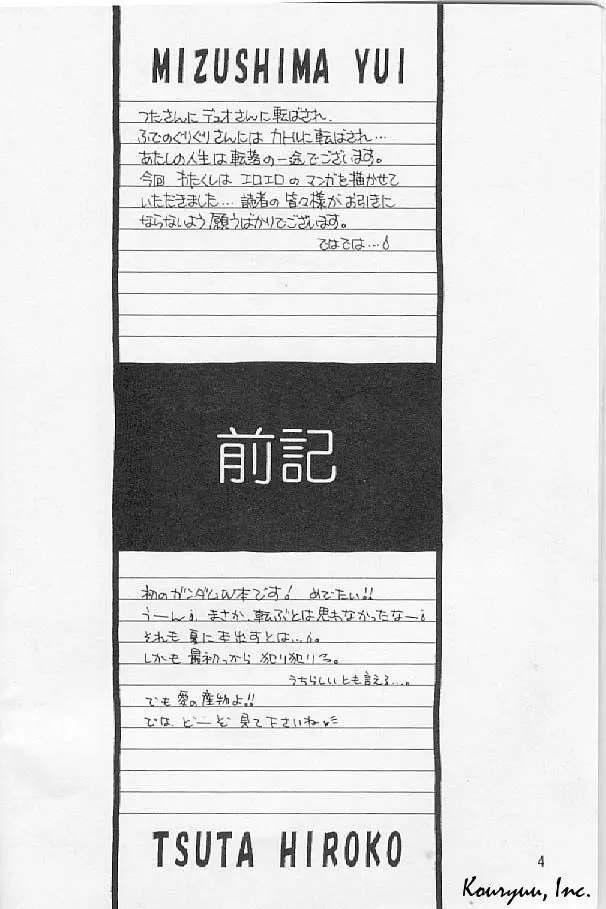 MIZUSHIMA YUI
つたさんに デュオさんに転ばされ、
ふでのぐりぐりさんには カトルに転ばされ…
あたしの人生は転落の一途でございます。
今回 わたくしは エロエロの マンガを描かせて
いただきました… 読者の 皆々様が お引きに
ならないよう、願うばかりでございます。
ではでは…
前記
初のガンダムW本です! めでたい!!
うーん、まさか、転ぶとは思わなかったなー
それも 夏に本出すとは…。
しかも 最初っから 犯り犯りる。
うちらしいとも言える…。
でも 愛の産物よ!!
では、どーぞ 見て下さいね
TSUTA HIROKO
4
Kouryuu, Inc.